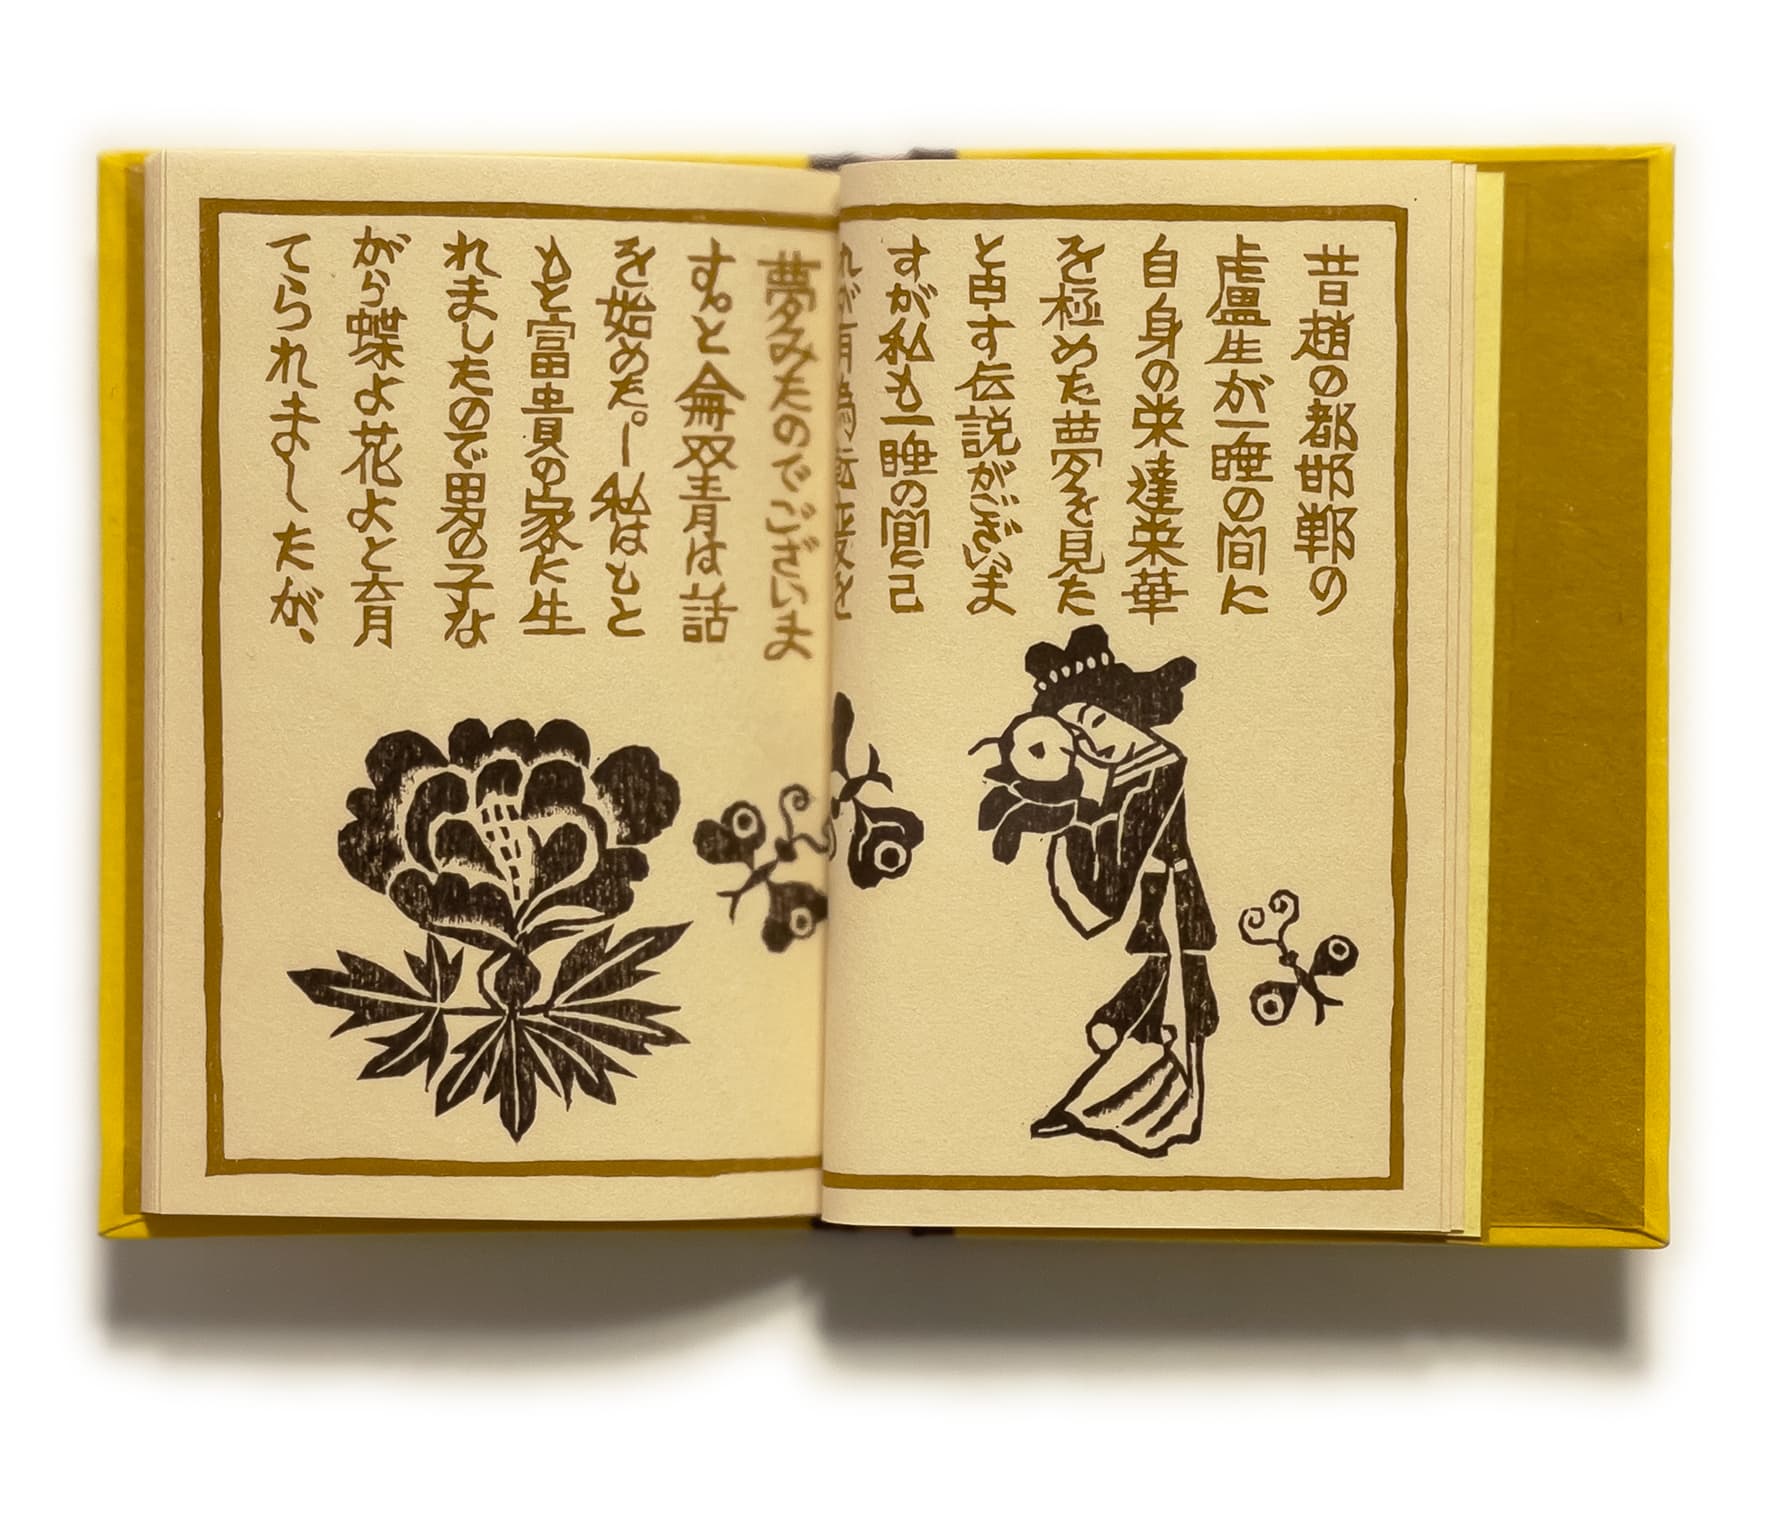 昔趙の都邯鄲の
盧生が一睡の間に
自身の栄達栄華
を極めた夢を見た
と申す伝説がございま
すが私も一睡の間に己
れが有為転変を
夢みたのでございま
す。と侖双青は話
を始めた。―私はもと
もと富貴の家に生
れましたので男の子な
がら蝶よ花よと育
てられましたが、